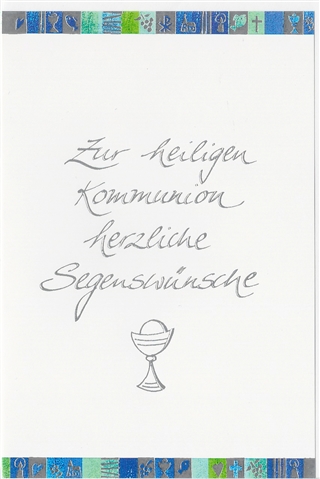 Zur heiligen
Kommunion
herzliche
Segenswünsche